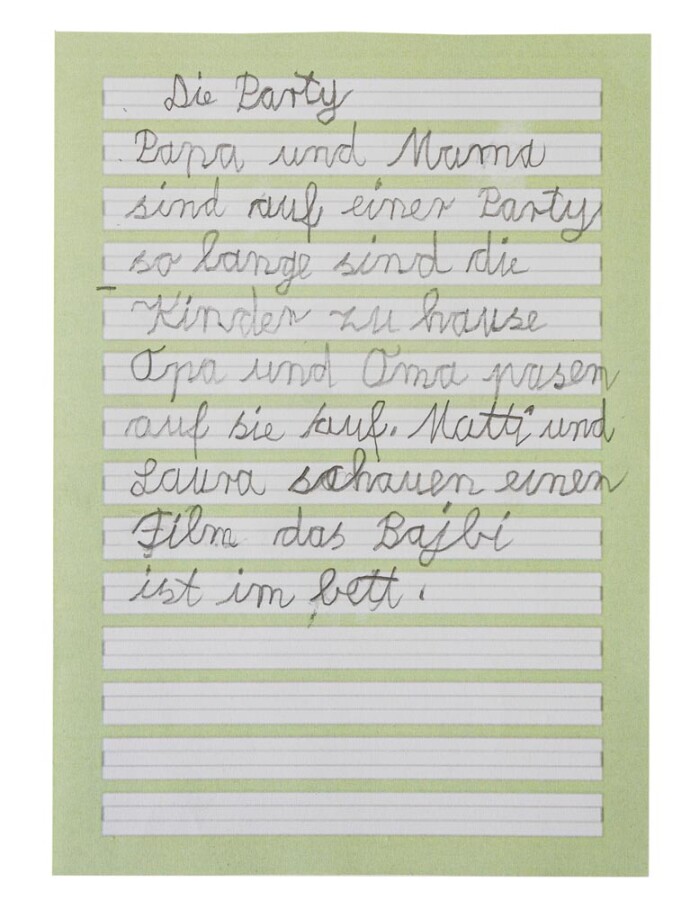 Die Party
Papa und Mama
sind auf einer Party
so lange sind die
Kinder zu hause
Opa und Oma pasen
auf sie auf. Matti und
Laura schauen einen
Film das Bajbi
ist im bett.